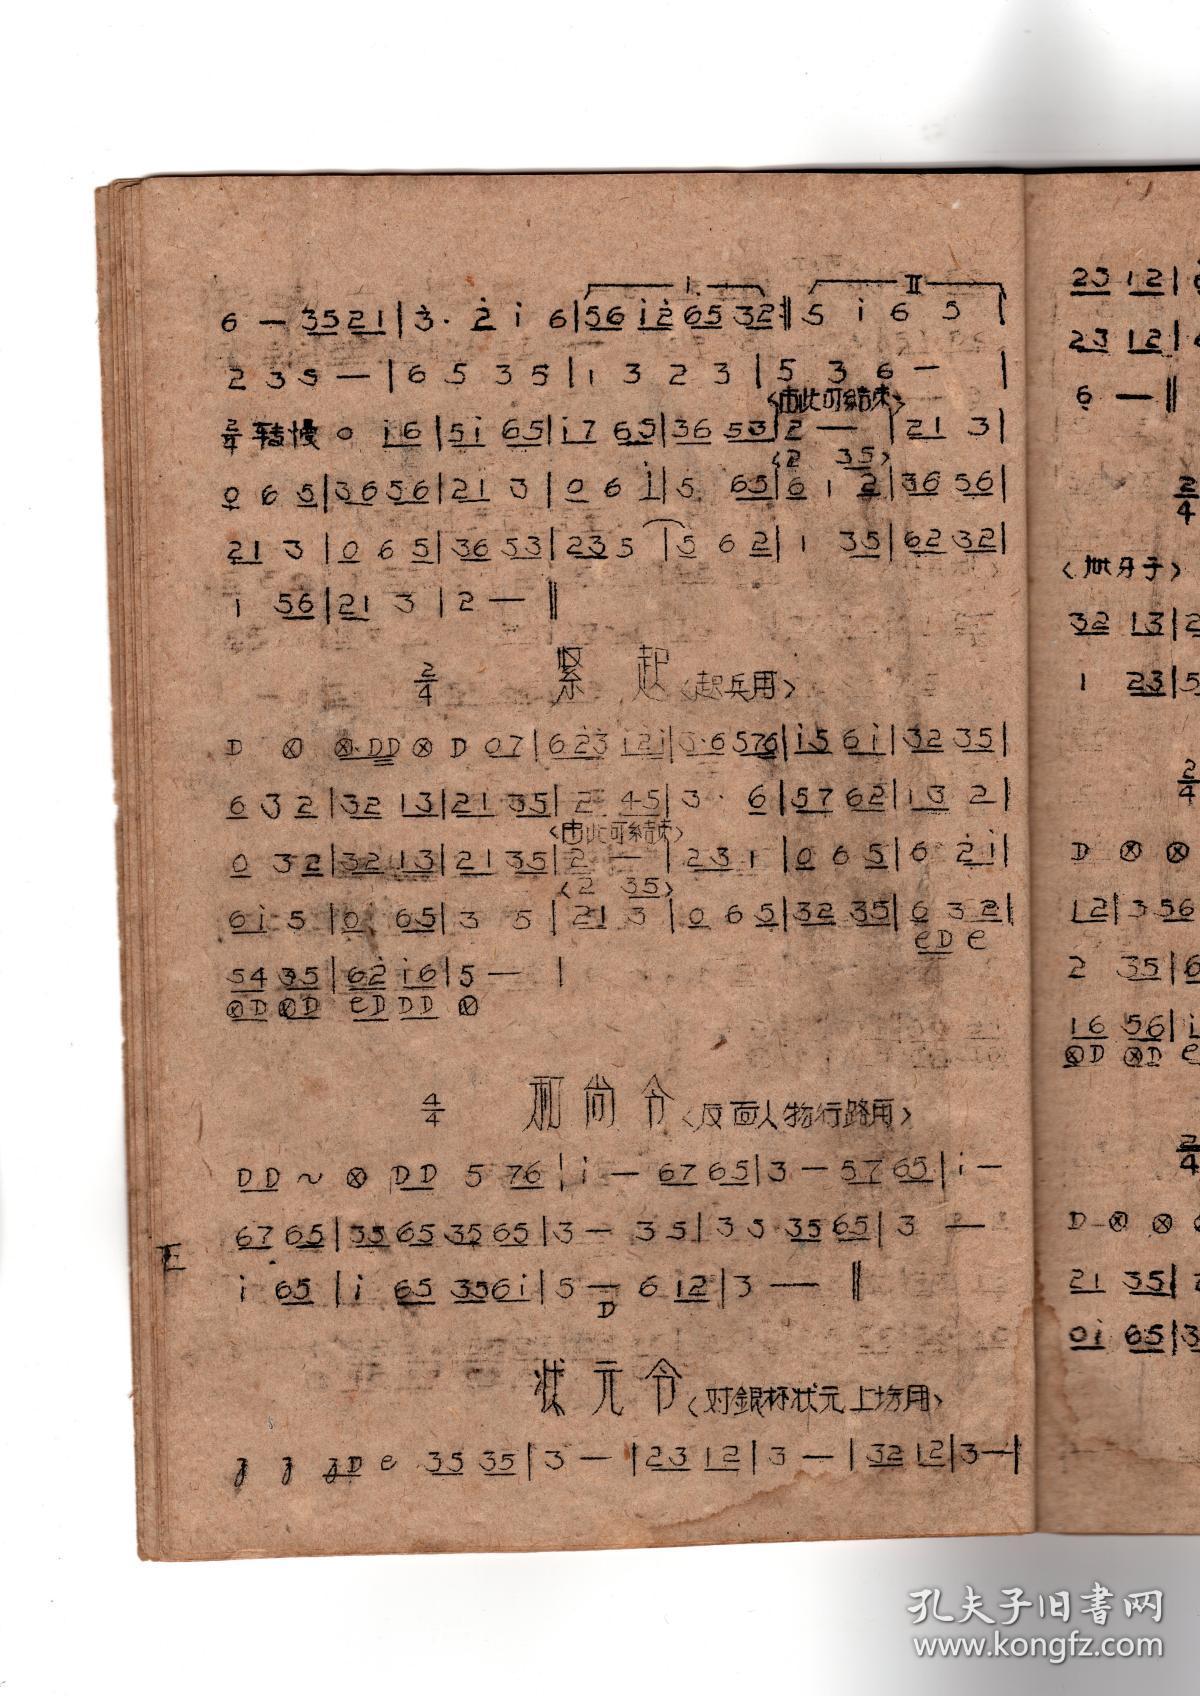 I II
6 — 3521 | 3· 2 i 6 | 56 i2 65 32 ‖ 5 i 6 5 |
2 3 5 — | 6 5 3 5 | 1 3 2 3 | 5 3 6 — |
<由此可結束>
2/4 转慢 0 i6 | 5i 65 | i7 65 | 36 53 | 2 — | 21 3 |
<2 35>
0 6 5 | 3656 | 21 3 | 0 6 i | 5 65 | 6 1 2 | 36 56 |
21 3 | 0 6 5 | 36 53 | 23 5 | 5 6 2 | 1 35 | 62 32 |
i 56 | 21 3 | 2 — ‖
2/4 緊起 <起兵用>
D ⊗ ⊗·DD ⊗ D 07 | 623 i2i | 3·6 576 | i5 6i | 32 35 |
6 3 2 | 32 13 | 21 35 | 2 45 | 3· 6 | 57 62 | 13 2 |
<由此可結束>
0 32 | 32 13 | 21 35 | 2 — | 23 1 | 0 6 5 | 6 2i |
<2 35>
6i 5 | 0 65 | 3 5 | 21 3 | 0 6 5 | 32 35 | 6 3 2 |
eD e
54 35 | 62 i6 | 5 — |
⊗D ⊗D eD DD ⊗
4/4 和尚令 <反面人物行路用>
DD ~ ⊗ DD 5 76 | i — 67 65 | 3 — 57 65 | i —
67 65 | 35 65 35 65 | 3 — 35 | 3 5 35 65 | 3 2 —
i 65 | i 65 356i | 5 — 6 12 | 3 — ‖
D
状元令 <对銀杯状元上坊用>
D e 35 35 | 3 — | 23 12 | 3 — | 32 12 | 3 — |
23 12 |
23 12 |
6 — ‖
2/4
<爪牙子>
32 13 | 2
1 23 | 5
2/4
D ⊗ ⊗
12 | 3 56
2 35 | 6
16 56 | i
⊗D ⊗D e
2/4
D — ⊗ ⊗
21 35 |
0i 65 | 3
孔夫子旧书网
www.kongfz.com